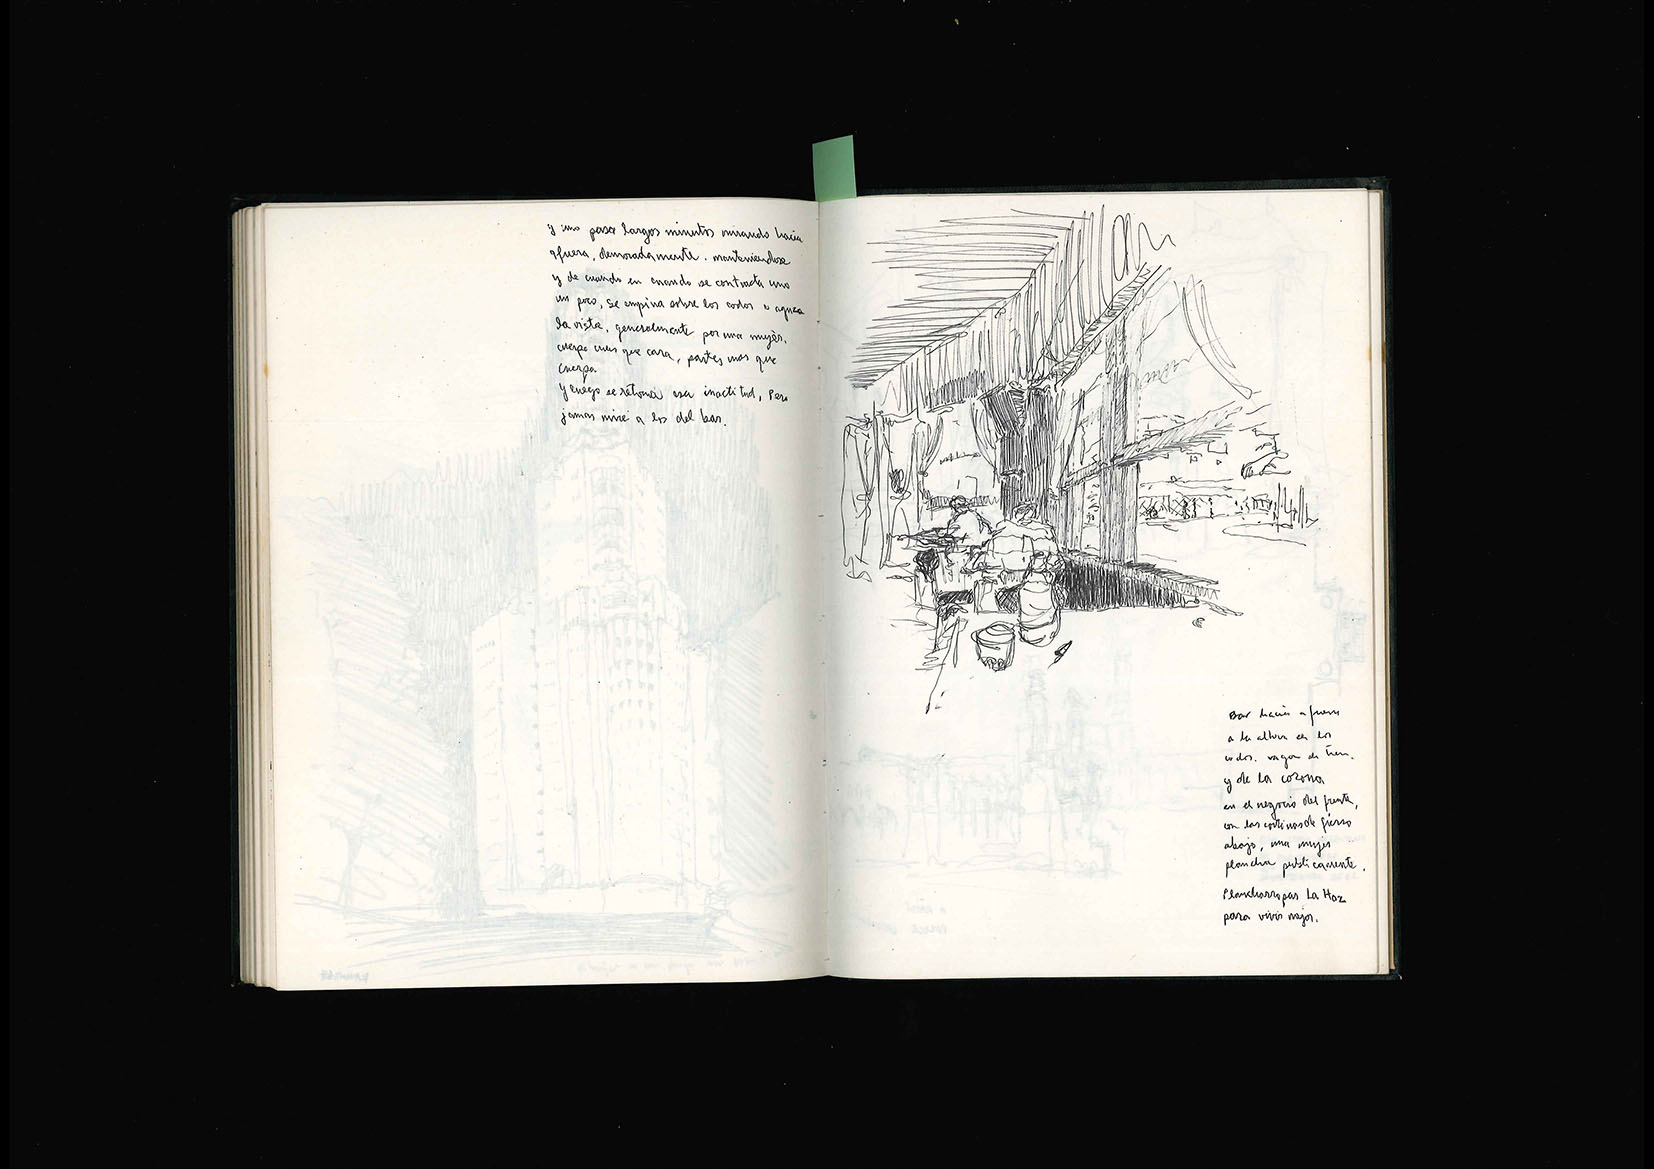 y uno pasa largos minutos mirando hacia
afuera, demoradamente. manteniendose
y de cuando en cuando se contracta uno
un poco, se empina sobre los codos o aguza
la vista, generalmente por una mujer,
cuerpo mas que cara, partes mas que
cuerpo.
y luego se retoma esa inactitud, Pero
jamas mire a los del bar.
Bar hacia afuera
a la altura de los
codos. vagon de tren.
y de la corona
en el negocio del frente,
con las cortinas de fierro
abajo, una mujer
plancha publicamente.
Planchar ropas La Haz
para vivir mejor.